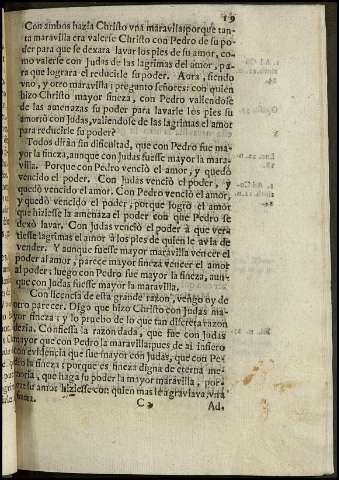 19
Con ambos hazia Christo vna maravilla: porque tan-
ta maravilla era valerse Christo con Pedro de su po
der para que se dexara lavar los pies de su amor, co-
mo valerse con Judas de las lagrimas del amor, pa-
ra que lograra el reducirle su poder. Aora, siendo
vno, y otro maravilla; pregunto señores: con quien
hizo Christo mayor fineza, con Pedro valiendose
de las amenazas su poder para lavarle los pies su
amor; ò con Judas, valiendose de las lagrimas el amor
para reducirle su poder?
Todos diràn sin dificultad, que con Pedro fue ma-
yor la fineza, aunque con Judas fuesse mayor la mara-
villa. Porque con Pedro venciò el amor, y quedò
vencido el poder. Con Judas venciò el poder, y
quedò vencido el amor. Con Pedro venciò el amor,
y quedò vencido el poder; porque logrò el amor
que hiziesse la amenaza el poder con que Pedro se
dexò lavar. Con Judas venciò el poder à que ver-
tiesse lagrimas el amor à los pies de quien le avia de
vender. Y aunque fuesse mayor maravilla vencer el
poder al amor, parece mayor fineza vencer el amor
al poder; luego con Pedro fue mayor la fineza, aun-
que con Judas fuesse mayor la maravilla.
Con licencia de esta grande razon, vengo oy de
otro parecer. Digo que hizo Christo con Judas ma-
yor fineza; y lo pruebo de lo que tan discreta razon
Confiessa la razon dada, que fue con Judas
mayor que con Pedro la maravilla; pues de ai infiero
con evidencia que fue mayor con Judas, que con Pe-
la fineza: porque es fineza digna de eterna me-
moria, que haga su poder la mayor maravilla, por-
su amor hiziesse con quien mas le agraviava, vna
C Ad-